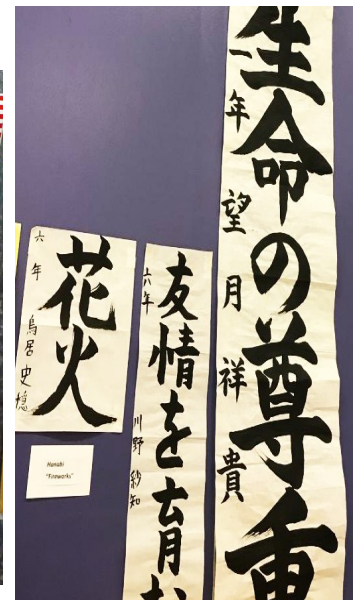 生命の尊重
一年 望月祥貴
友情を育む
六年 川野紗知
花火
六年 鳥居史穏
Hanabi
"Fireworks"